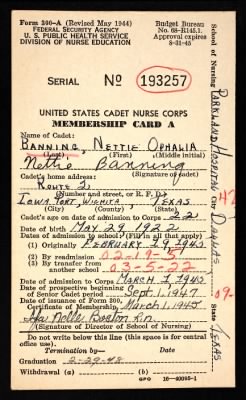 Form 300-A (Revised May 1944)
FEDERAL SECURITY AGENCY
U. S. PUBLIC HEALTH SERVICE
DIVISION OF NURSE EDUCATION
Budget Bureau
No. 68-R145.1.
Approval expires
8-31-45
SERIAL No 193257
UNITED STATES CADET NURSE CORPS
MEMBERSHIP CARD A
Name of Cadet:
BANNING, NETTIE OPHALIA
(Last) (First) (Middle initial)
Nettie Banning
(Signature of cadet)
Cadet's home address:
ROUTE 2
(Number and street, or R. F. D.)
IOWA PORT, WICHITA, TEXAS
(City) (County) (State)
Cadet's age on date of admission to school 22
Date of birth MAY 29 1922
Dates of admission to school: (Fill in all that apply)
(1) Originally FEBRUARY 19, 1945
(2) By readmission 02-19-5
(3) By transfer from
another school 03-5-22
Date of admission to Corps MARCH 1, 1945
Date of prospective beginning of
Senior Cadet period Sept 1, 1947
Date of issuance of Form 300,
Certificate of Membership March 1, 1945
(Signature of Director of School of Nursing)
Do not write below this line (this space is for central
office use).
Termination by— Date
Graduation 2-29-48
Withdrawal (a)
(b) GPO 16-40093-1
School of Nursing PARKLAND HOSPITAL City DALLAS State TEXAS
47
09-